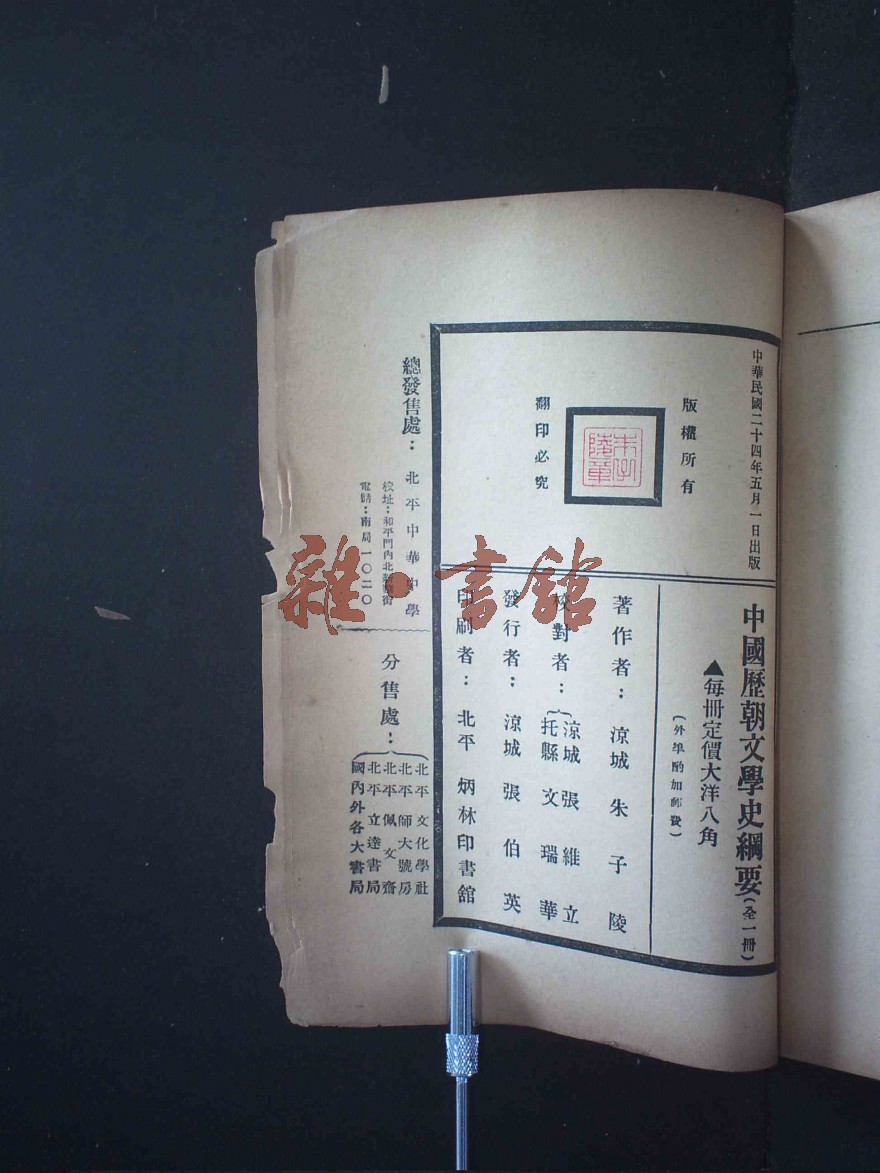 中華民國二十四年五月一日出版
版權所有
朱子陵章
翻印必究
中國歷朝文學史綱要(全一冊)
▲每冊定價大洋八角
(外埠酌加郵費)
著作者：涼城 朱子陵
校對者：{涼城 張維立
托縣 文瑞華
發行者：涼城 張伯英
印刷者：北平 炳林印書館
總發售處：北平中華中學
校址：和平門內北新華街
電話：南局一〇二〇
分售處：{北平文化學社
北平師大號房
北平佩文齋
北平立達書局
國內外各大書局
雜·書館